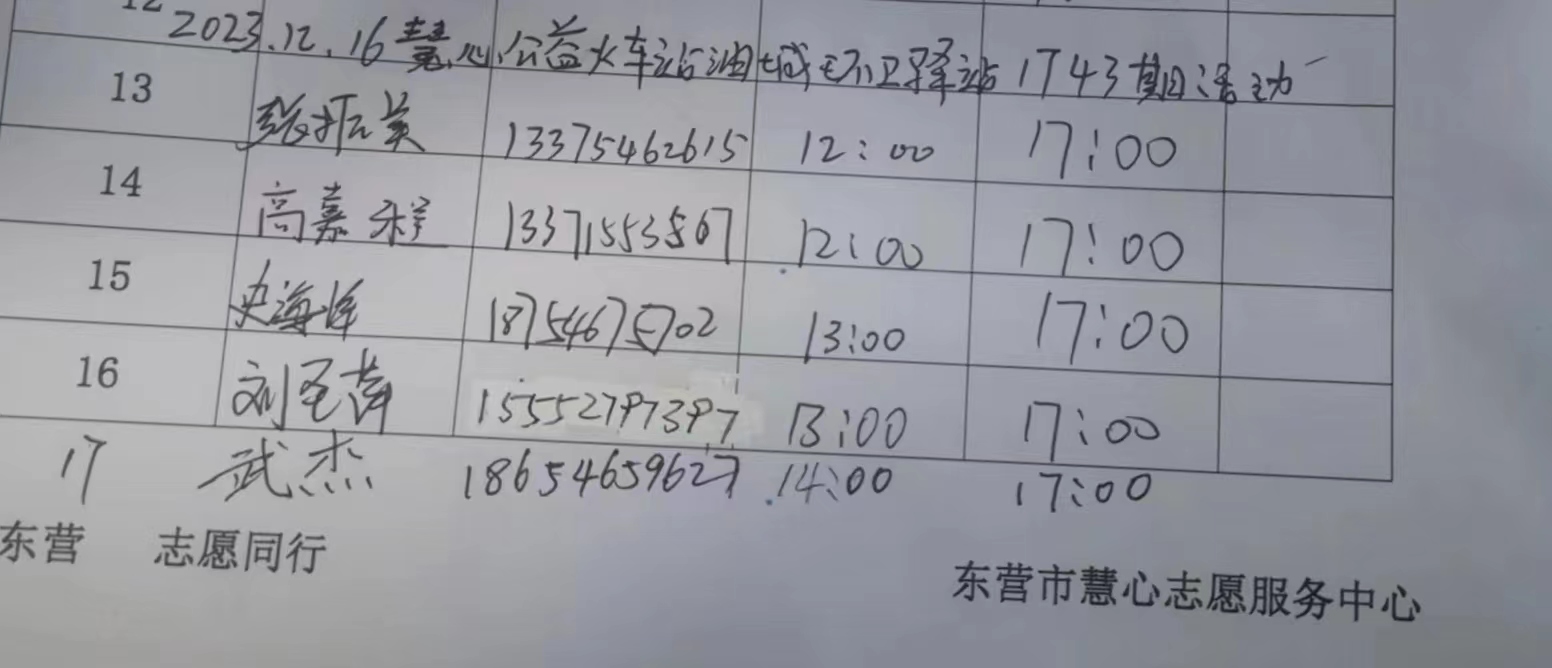 12
2023.12.16慧心公益火车站油城环卫驿站1743期活动
13 张振英 13375462615 12:00 17:00
14 高嘉程 13371553567 12:00 17:00
15 史海峰 18754675702 13:00 17:00
16 刘圣萍 15552797397 13:00 17:00
17 武杰 18654659627 14:00 17:00
东营 志愿同行
东营市慧心志愿服务中心